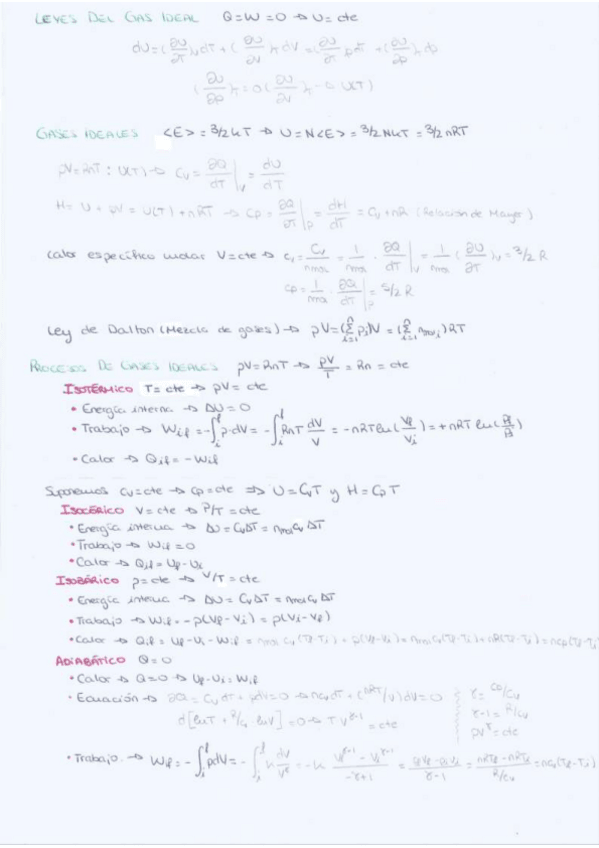 LEYES DEL GAS IDEAL Q=W=0 → U=cte
dU=(∂U/∂T)_V dT+(∂U/∂V)_T dV=(∂U/∂T)_P dT+(∂U/∂p)_T dp
(∂U/∂p)_T=0 (∂U/∂V)_T → U(T)
GASES IDEALES <E>=3/2kT → U=N<E>=3/2NkT=3/2nRT
pV=RnT: U(T) → Cv=∂Q/dT|_V=dU/dT
H=U+pV=U(T)+nRT → Cp=∂Q/∂T|_P=dH/dT=Cv+nR (Relación de Mayer)
Calor específico molar V=cte → cv=Cv/nmol=1/nmol·∂Q/dT|_V=1/nmol(∂U/∂T)_V=3/2R
cp=1/nmol·∂Q/dT|_P=5/2R
Ley de Dalton (Mezcla de gases) → pV=(Σ_{i=1}^n pi)V=(Σ_{i=1}^n nmol_i)RT
PROCESOS DE GASES IDEALES pV=RnT → pV/T=Rn=cte
ISOTÉRMICO T=cte → pV=cte
• Energía interna → ΔU=0
• Trabajo → Wif=-∫_i^f p·dV=-∫_i^f RnT dV/V=-nRT ln(Vf/Vi)=+nRT ln()
• Calor → Qif=-Wif
Suponemos Cv=cte → Cp=cte ⇒ U=CvT y H=CpT
ISOCÓRICO V=cte → P/T=cte
• Energía interna → ΔU=CvΔT=nmol cv ΔT
• Trabajo → Wif=0
• Calor → Qif=Uf-Ui
ISOBÁRICO p=cte → V/T=cte
• Energía interna → ΔU=CvΔT=nmol cv ΔT
• Trabajo → Wif=-p(Vf-Vi)=p(Vi-Vf)
• Calor → Qif=Uf-Ui-Wif=nmol cv(Tf-Ti)+p(Vf-Vi)=nmol cv(Tf-Ti)+nR(Tf-Ti)=ncp(Tf-Ti)
ADIABÁTICO Q=0
• Calor → Q=0 → Uf-Ui=Wif
• Ecuación → ∂Q=CvdT+pdV=0 → ncvdT+(nRT/V)dV=0 γ=cp/cv
d[lnT+R/cv·lnV]=0 → TV^{γ-1}=cte γ-1=R/cv
pV^γ=cte
• Trabajo → Wif=-∫_i^f pdV=-∫_i^f k dV/V^γ=-k Vf^{γ-1}-Vi^{γ-1}/-γ+1=pfVf-piVi/γ-1=nRTf-nRTi/R/cv=ncv(Tf-Ti)